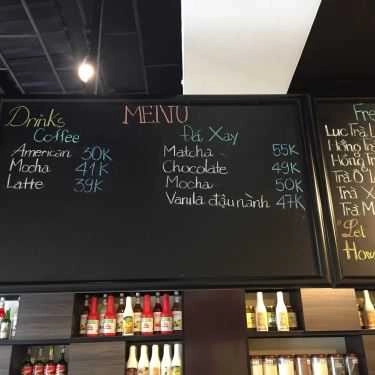 Drinks
MENU
Coffee
American 30K
Mocha 41K
Latte 39K
Đá Xay
Matcha 55K
Chocolate 49K
Mocha 50K
Vanila đậu nành 47K
Fre
Lục Trà L
Hồng Trà
Hồng Trà
Trà Ô L
Trà X
Trà M
"Let
Hom